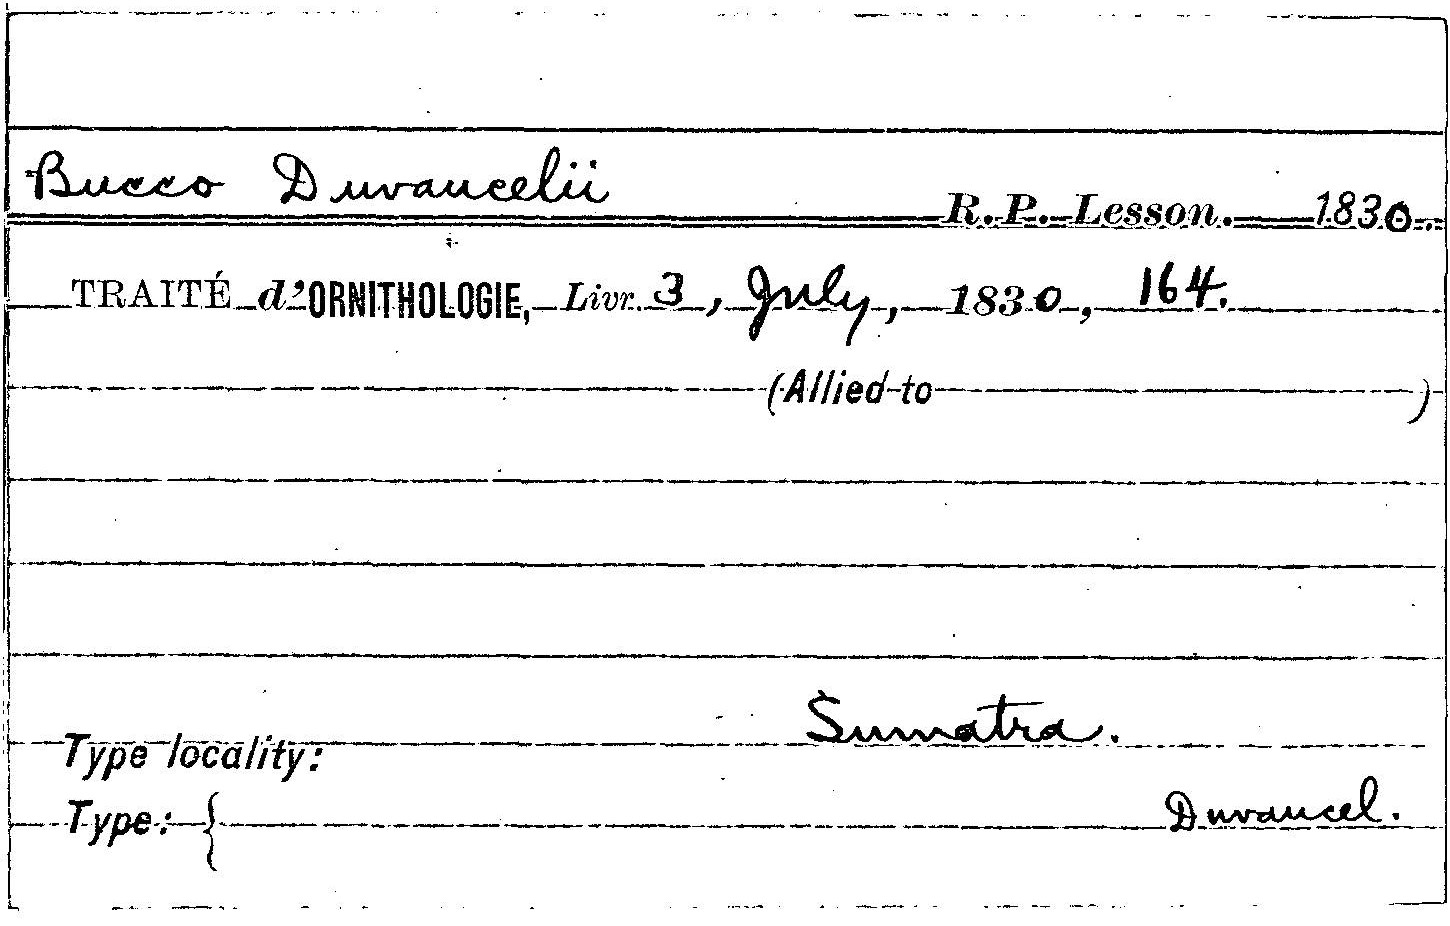 Bucco Duvaucelii R. P. Lesson. 1830.
TRAITÉ d'ORNITHOLOGIE, Livr. 3, July, 1830, 164.
(Allied to )
Sumatra.
Type locality:
Duvaucel.
Type: {